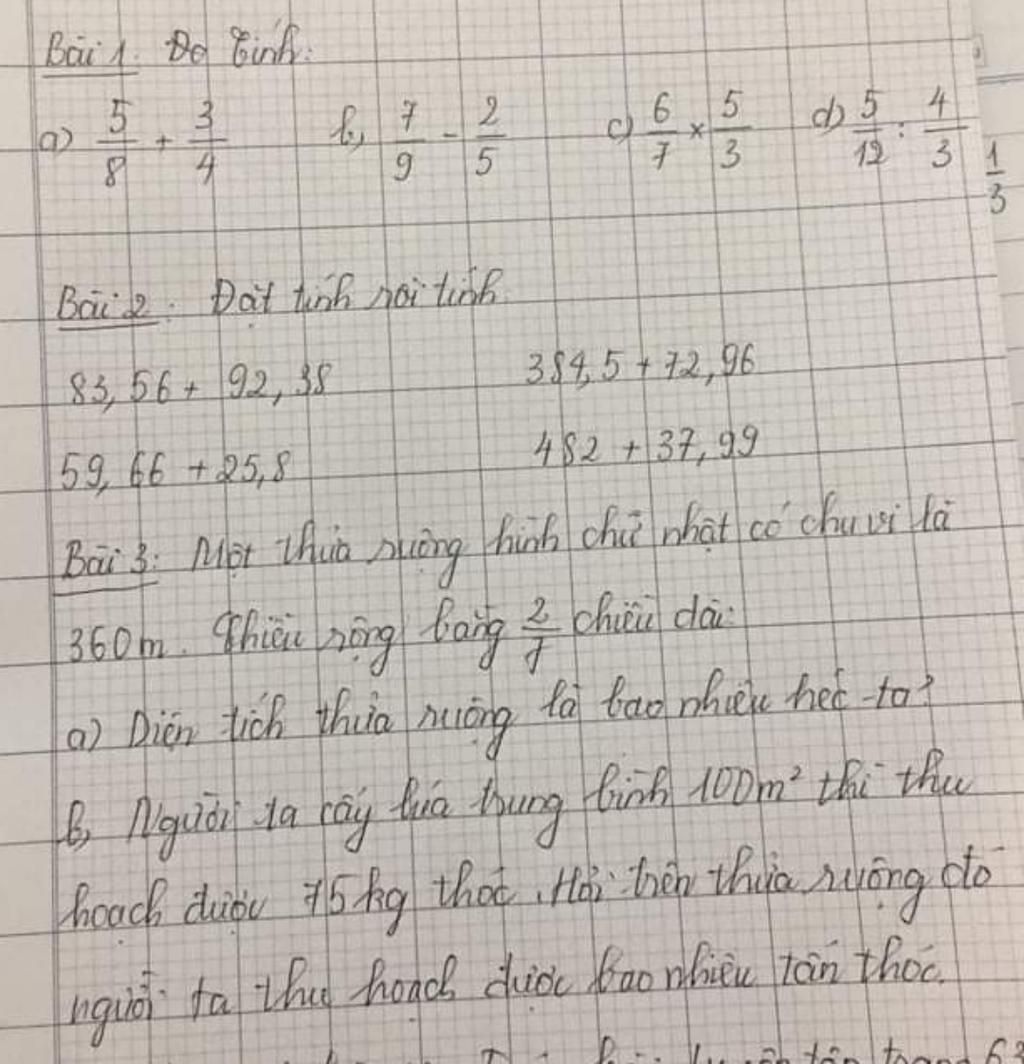 Bài 1. Đo Tính:
a) 5/8 + 3/4 b, 7/9 - 2/5 c) 6/7 × 5/3 d) 5/12 : 4/3
1/3
Bài 2: Đặt tính rồi tính
83,56 + 92,38 384,5 + 72,96
59,66 + 25,8 482 + 37,99
Bài 3: Một thửa ruộng hình chữ nhật có chu vi là
360m. Chiều rộng bằng 2/7 chiều dài:
a) Diện tích thửa ruộng là bao nhiêu héc-ta?
b, Người ta cấy lúa trung bình 100m² thì thu
hoạch được 75kg thóc. Hỏi trên thửa ruộng đó
người ta thu hoạch được bao nhiêu tấn thóc.